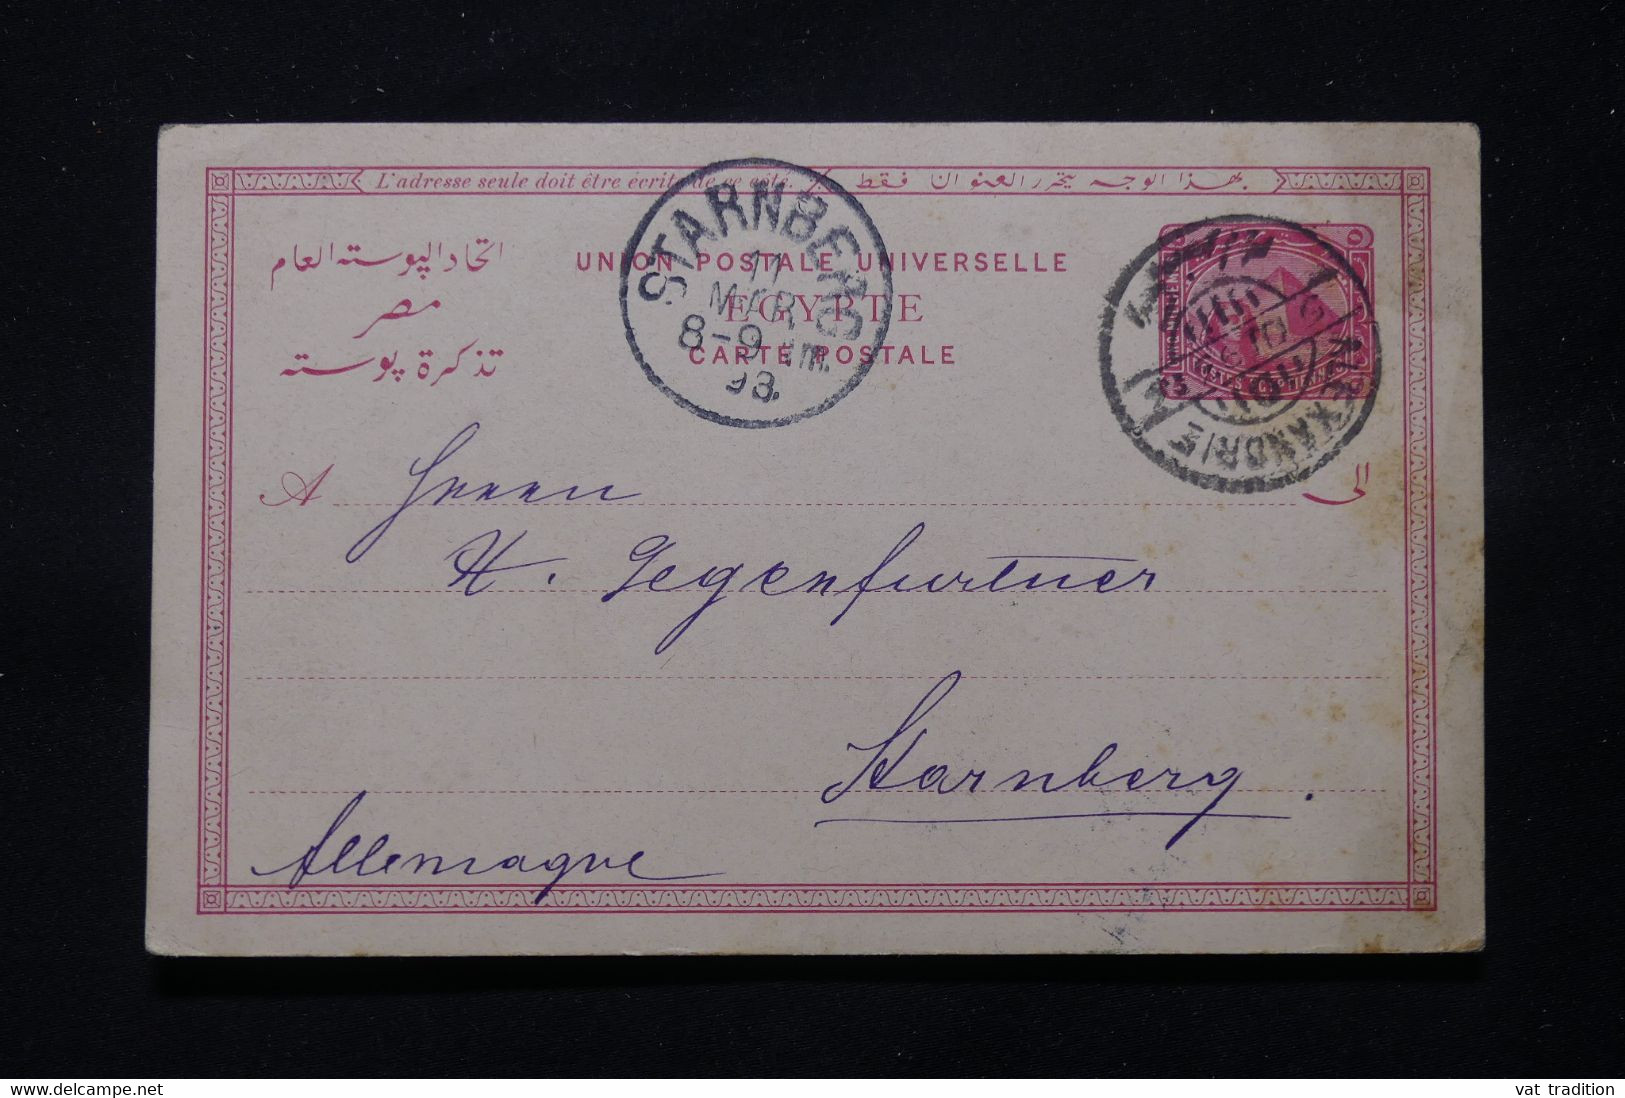 L'adresse seule doit être écrite de ce côté.
بهذا الوجه يتحرر العنوان فقط
اتحاد البوسته العام
مصر
تذكرة بوسته
UNION POSTALE UNIVERSELLE
EGYPTE
CARTE POSTALE
STARNBERG
11
MAR
8-9 Vm.
98.
ALEXANDRIE
A Herrn
الى
H. Gegenfurtner
Starnberg.
Allemagne
www.delcampe.net
vat_tradition